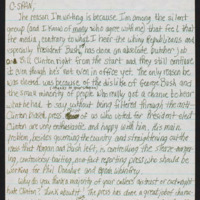 C-SPAN,
The reason I'm writing is because I'm among the silent
group (and I know of many who agree with me) that feel that
the media, contrary to what I hear the whiny Republicans and
specially President Bush, has done an absolute butchery job
on Bill Clinton right from the start and they still continue
to even though he's not even in office yet. The only reason he
was elected was because of the dislike of George Bush and
the small minority of people who really got a chance to hear
what he had to say without being filtered through the anti-
Clinton Bush press. of us who voted for President-elect
Clinton are very enthusiastic and happy with him, this main
problem, besides running the country and straightening out the
mess that Reagan and Bush left, is controlling the
controversy hunting, non-fact reporting press who should be
working for Phil Donahue and Oprah Winfrey.
Why do you think a majority of your callers distrust or outright
hate Clinton? Think about it. The press has done a great job of